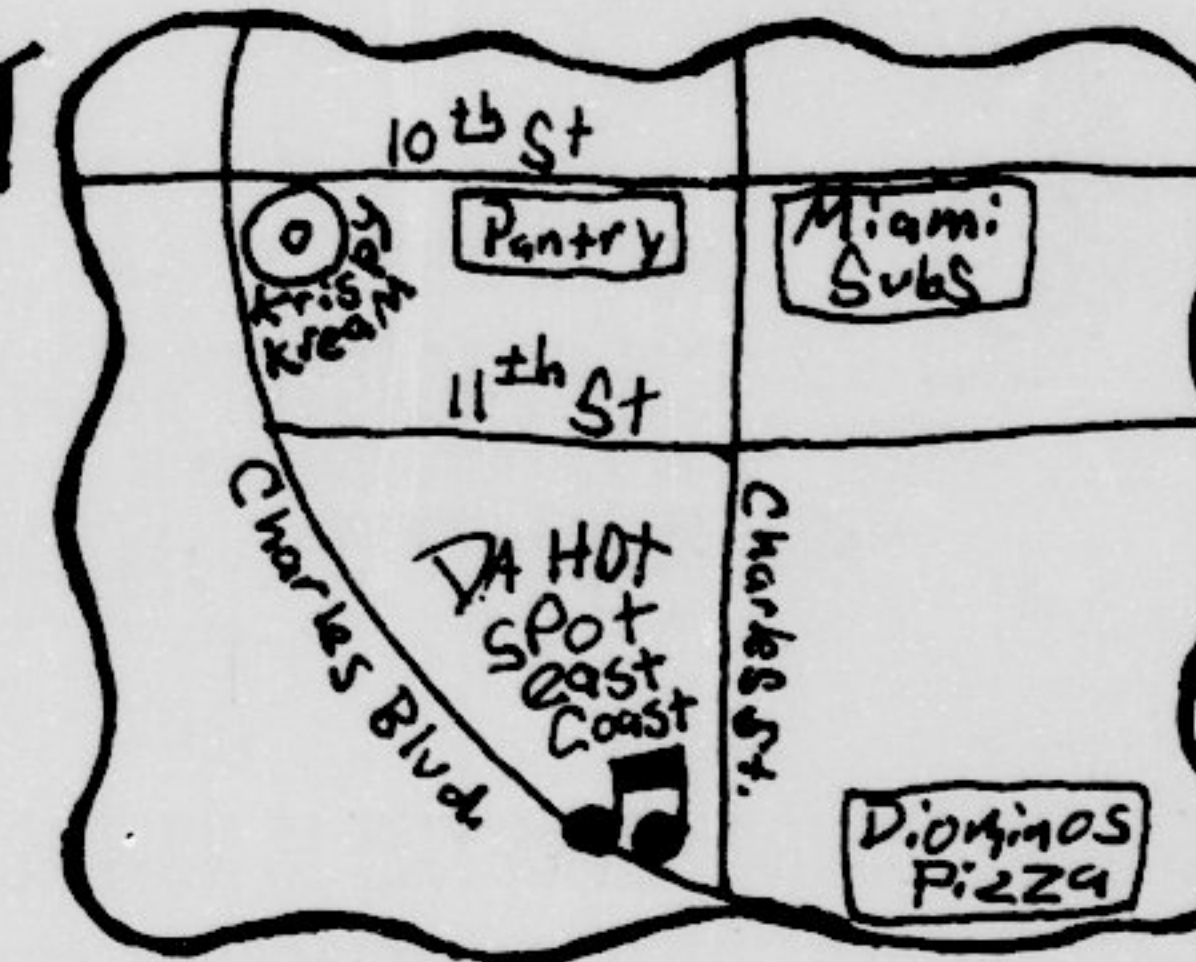 10th St
Krispy
Kream
Pantry
Miami
Subs
11th St
Charles Blvd.
DA HOT
SPot
east
Coast
Charles St.
Diominos
Pizza